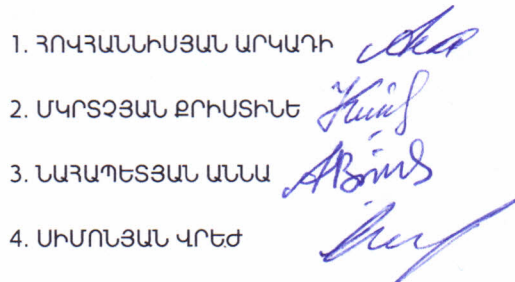 1. ՀՈՎՀԱՆՆԻՍՅԱՆ ԱՐԿԱԴԻ
2. ՄԿՐՏՉՅԱՆ ՔՐԻՍՏԻՆԵ
3. ՆԱՀԱՊԵՏՅԱՆ ԱՆՆԱ
4. ՍԻՄՈՆՅԱՆ ՎՐԵԺ